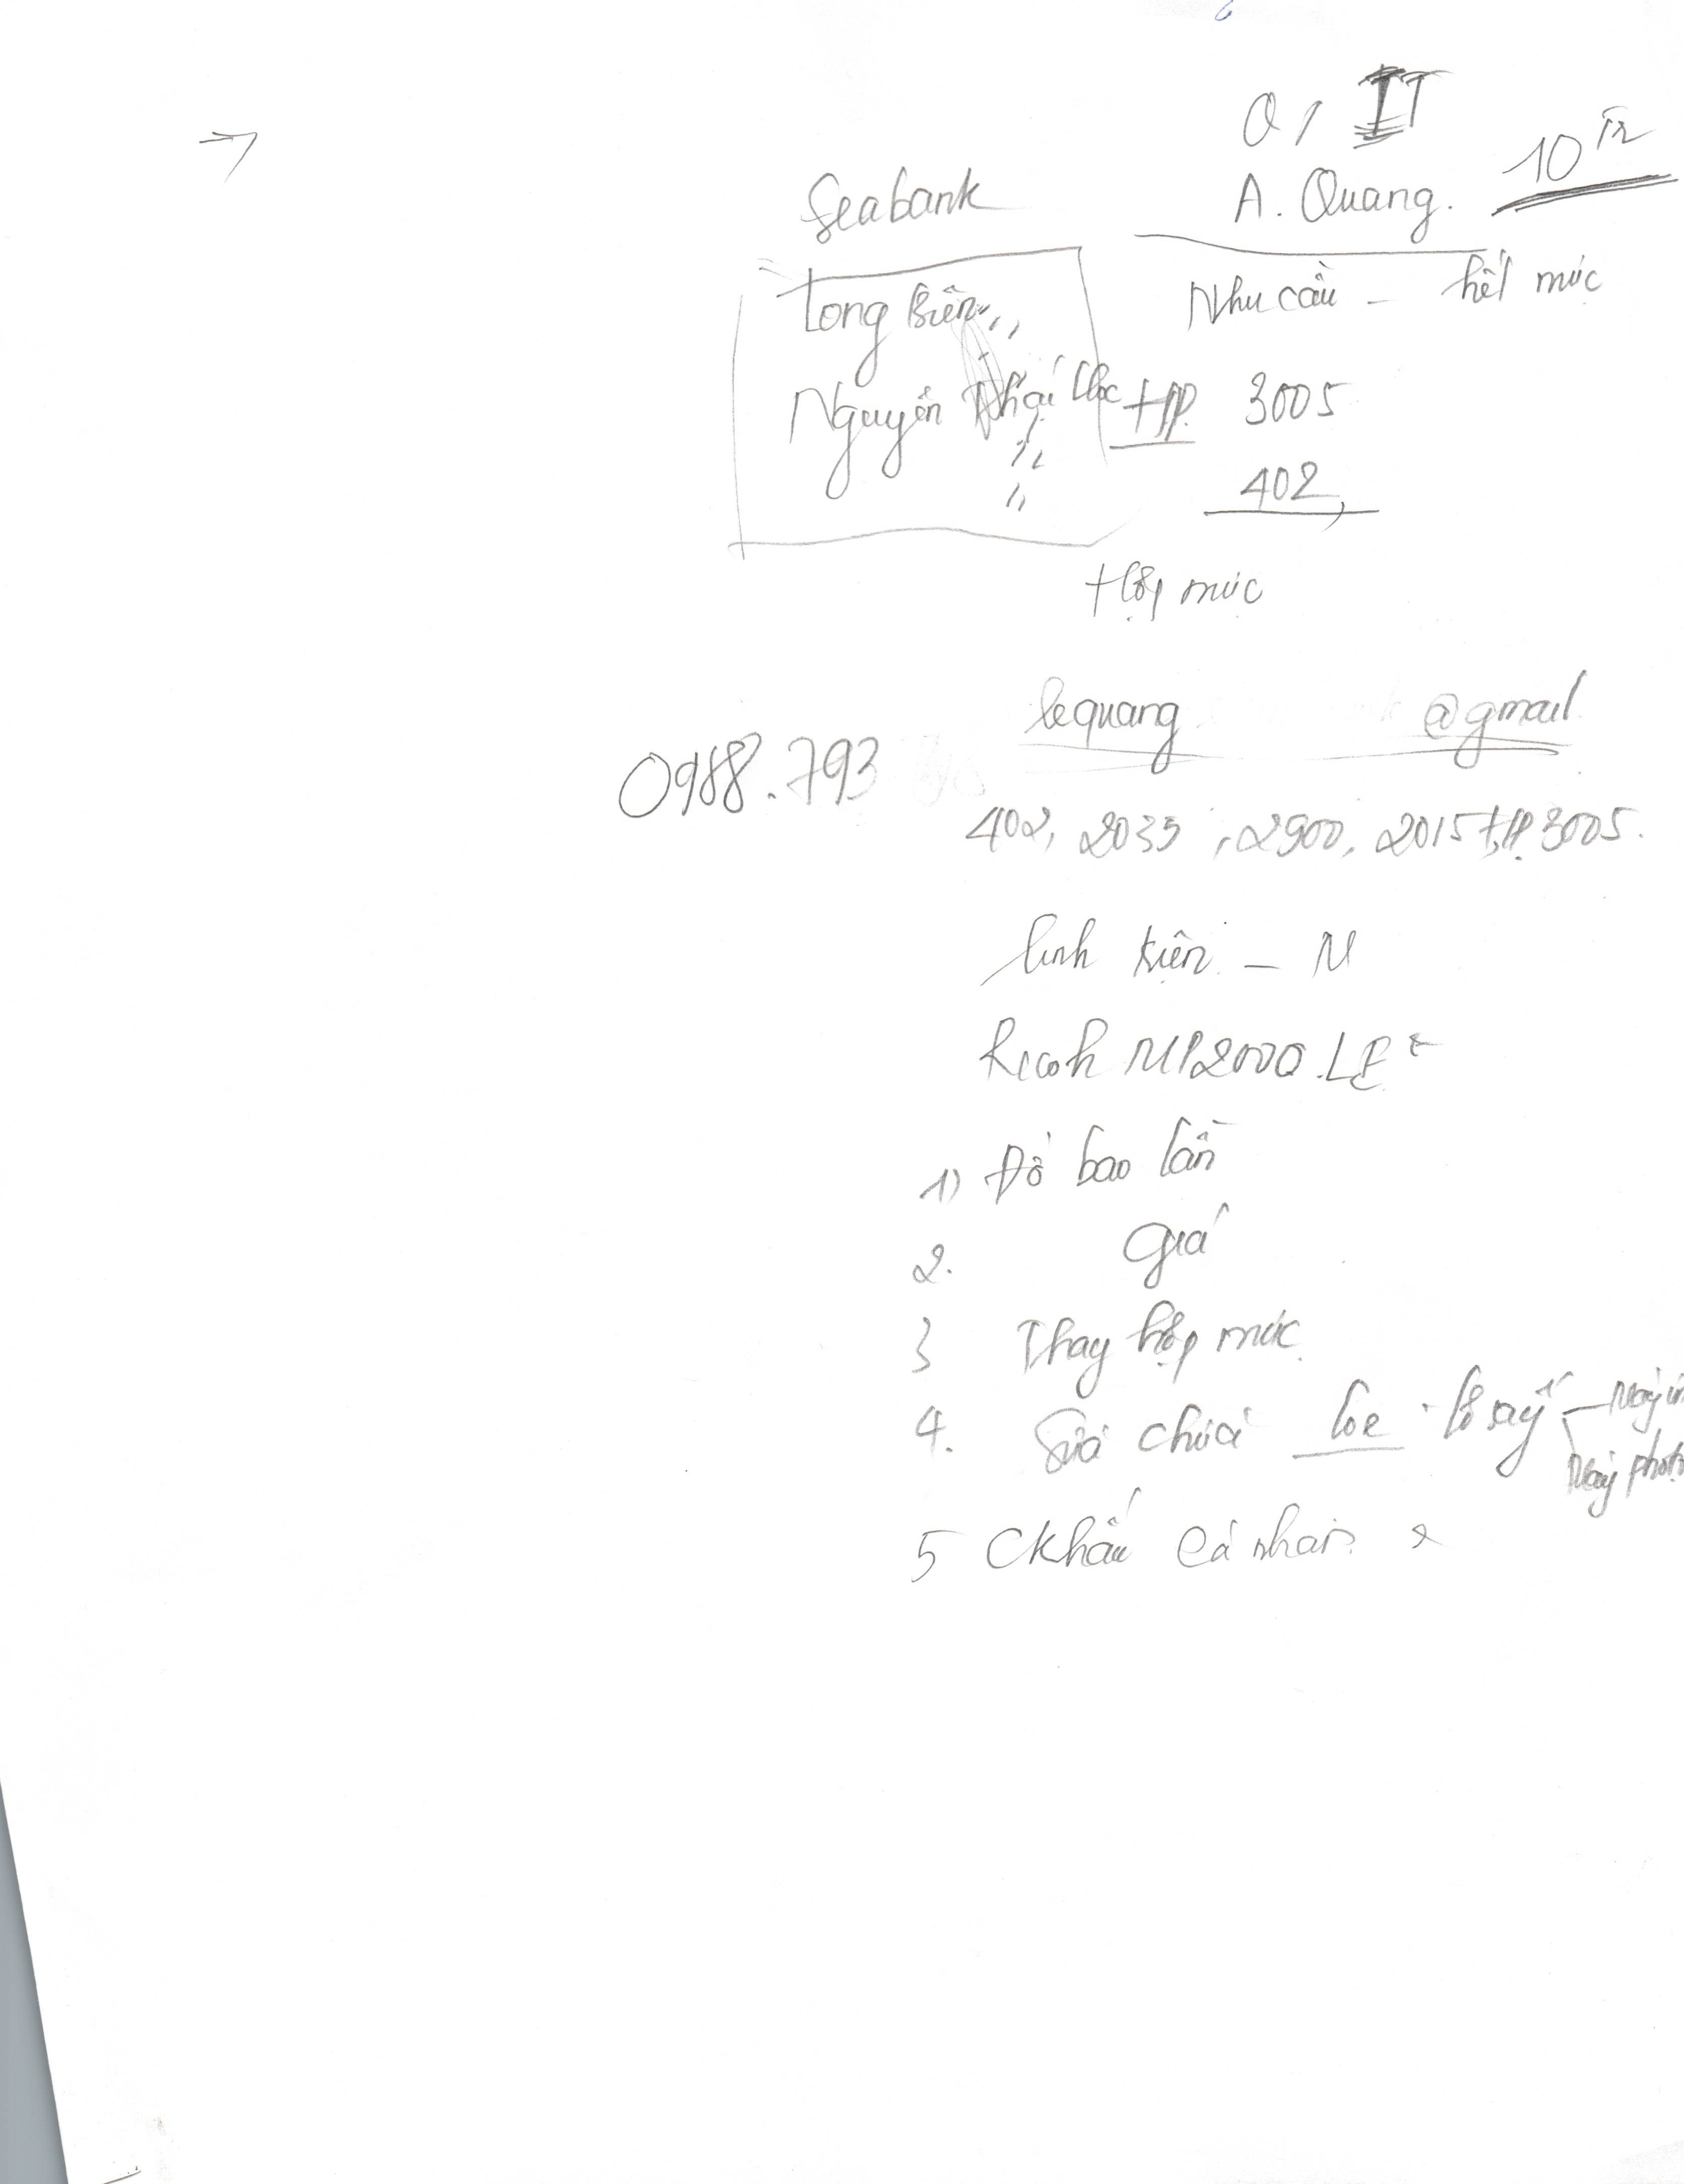 IT
10 tr
Seabank
A. Quang.
Long Biên
Nhu cầu - hết mực
Nguyễn Thái Học
HP 3005
402,
Hộp mực
lequang @gmail
0988.793
402, 2035, 2900, 2015 HP 3005.
linh kiện - M
Ricoh MP2000.LE
1) Đổ bao lần
2. giá
3 Thay hộp mực
4. Sửa chữa lô sấy
Máy in
Máy photo
5 Ckhấu cá nhân